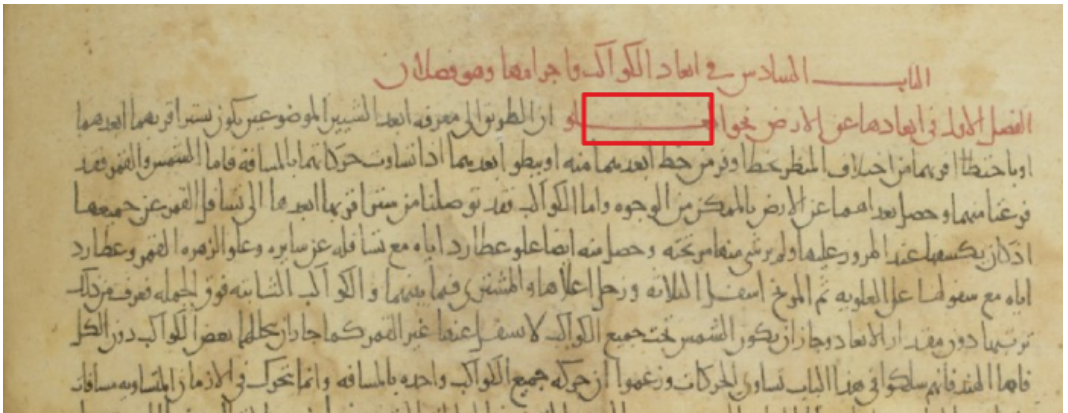 الباب السادس في ابعاد الكواكب واجرامها وهو فصلان
الفصل الاول في ابعادها عن الارض نحو العلو ان الطريق الى معرفة ابعد الشيين الموضوعين يكون بستر اقربهما ابعدهما
او باختطا اقربهما من اختلاف المنظر خطا اوفر من خط ابعدهما منه او ببطو ابعدهما اذا تساوت حركاتهما بالمسافة فاما الشمس والقمر فقد
فرغنا منهما وحصل بعداهما عن الارض بالممكن من الوجوه واما الكواكب فقد توصلنا من ستر اقربها ابعدها الى تسافل القمر عن جميعها
اذ كان يكسفها عند المرور عليها ولم ير شي منها مر تحته وحصل منه ايضا علو عطارد اياه مع تسافله عن سايره وعلو الزهره القمر وعطارد
اياه مع سفولها عن العلويه ثم المريخ اسفل الثلاثه وزحل اعلاها والمشترى فيما بينهما والكواكب الثابته فوق الجمله فعرف من ذلك
ترتيبها دون مقدار الابعاد وجاز ان يكون الشمس تحت جميع الكواكب لا تسفل عنها غير القمر كما جاز ان يتخللها بعض الكواكب دون الكل
فاما الهند فانهم سلكوا في هذا الباب تساوى الحركات وزعموا ان حركه جميع الكواكب واحده بالمسافه وانما تتحرك في الازمان المتساويه مسافات